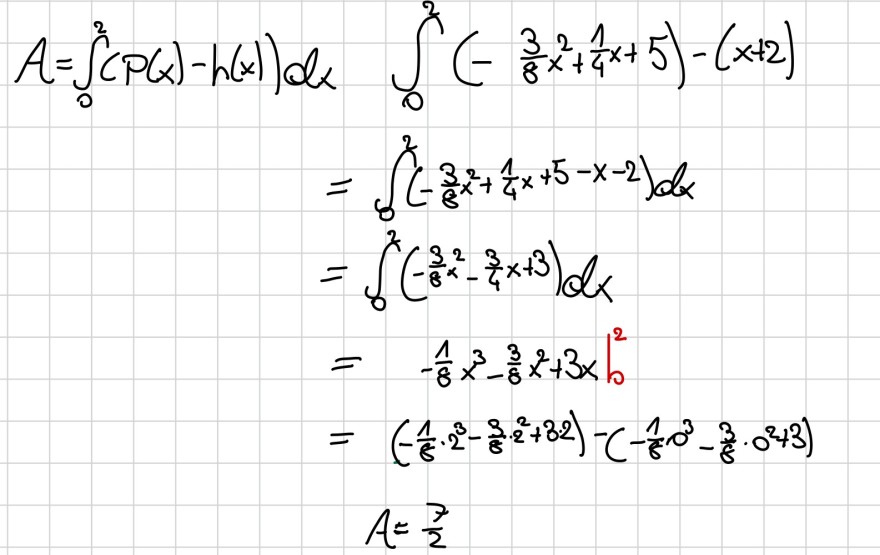 A = ∫₀² (p(x) - h(x)) dx ∫₀² (- 3/8 x² + 1/4 x + 5) - (x+2)
= ∫₀² (- 3/8 x² + 1/4 x + 5 - x - 2) dx
= ∫₀² (- 3/8 x² - 3/4 x + 3) dx
= - 1/8 x³ - 3/8 x² + 3x |₀²
= (- 1/8 · 2³ - 3/8 · 2² + 3·2) - (- 1/8 · 0³ - 3/8 · 0² + 3)
A = 7/2